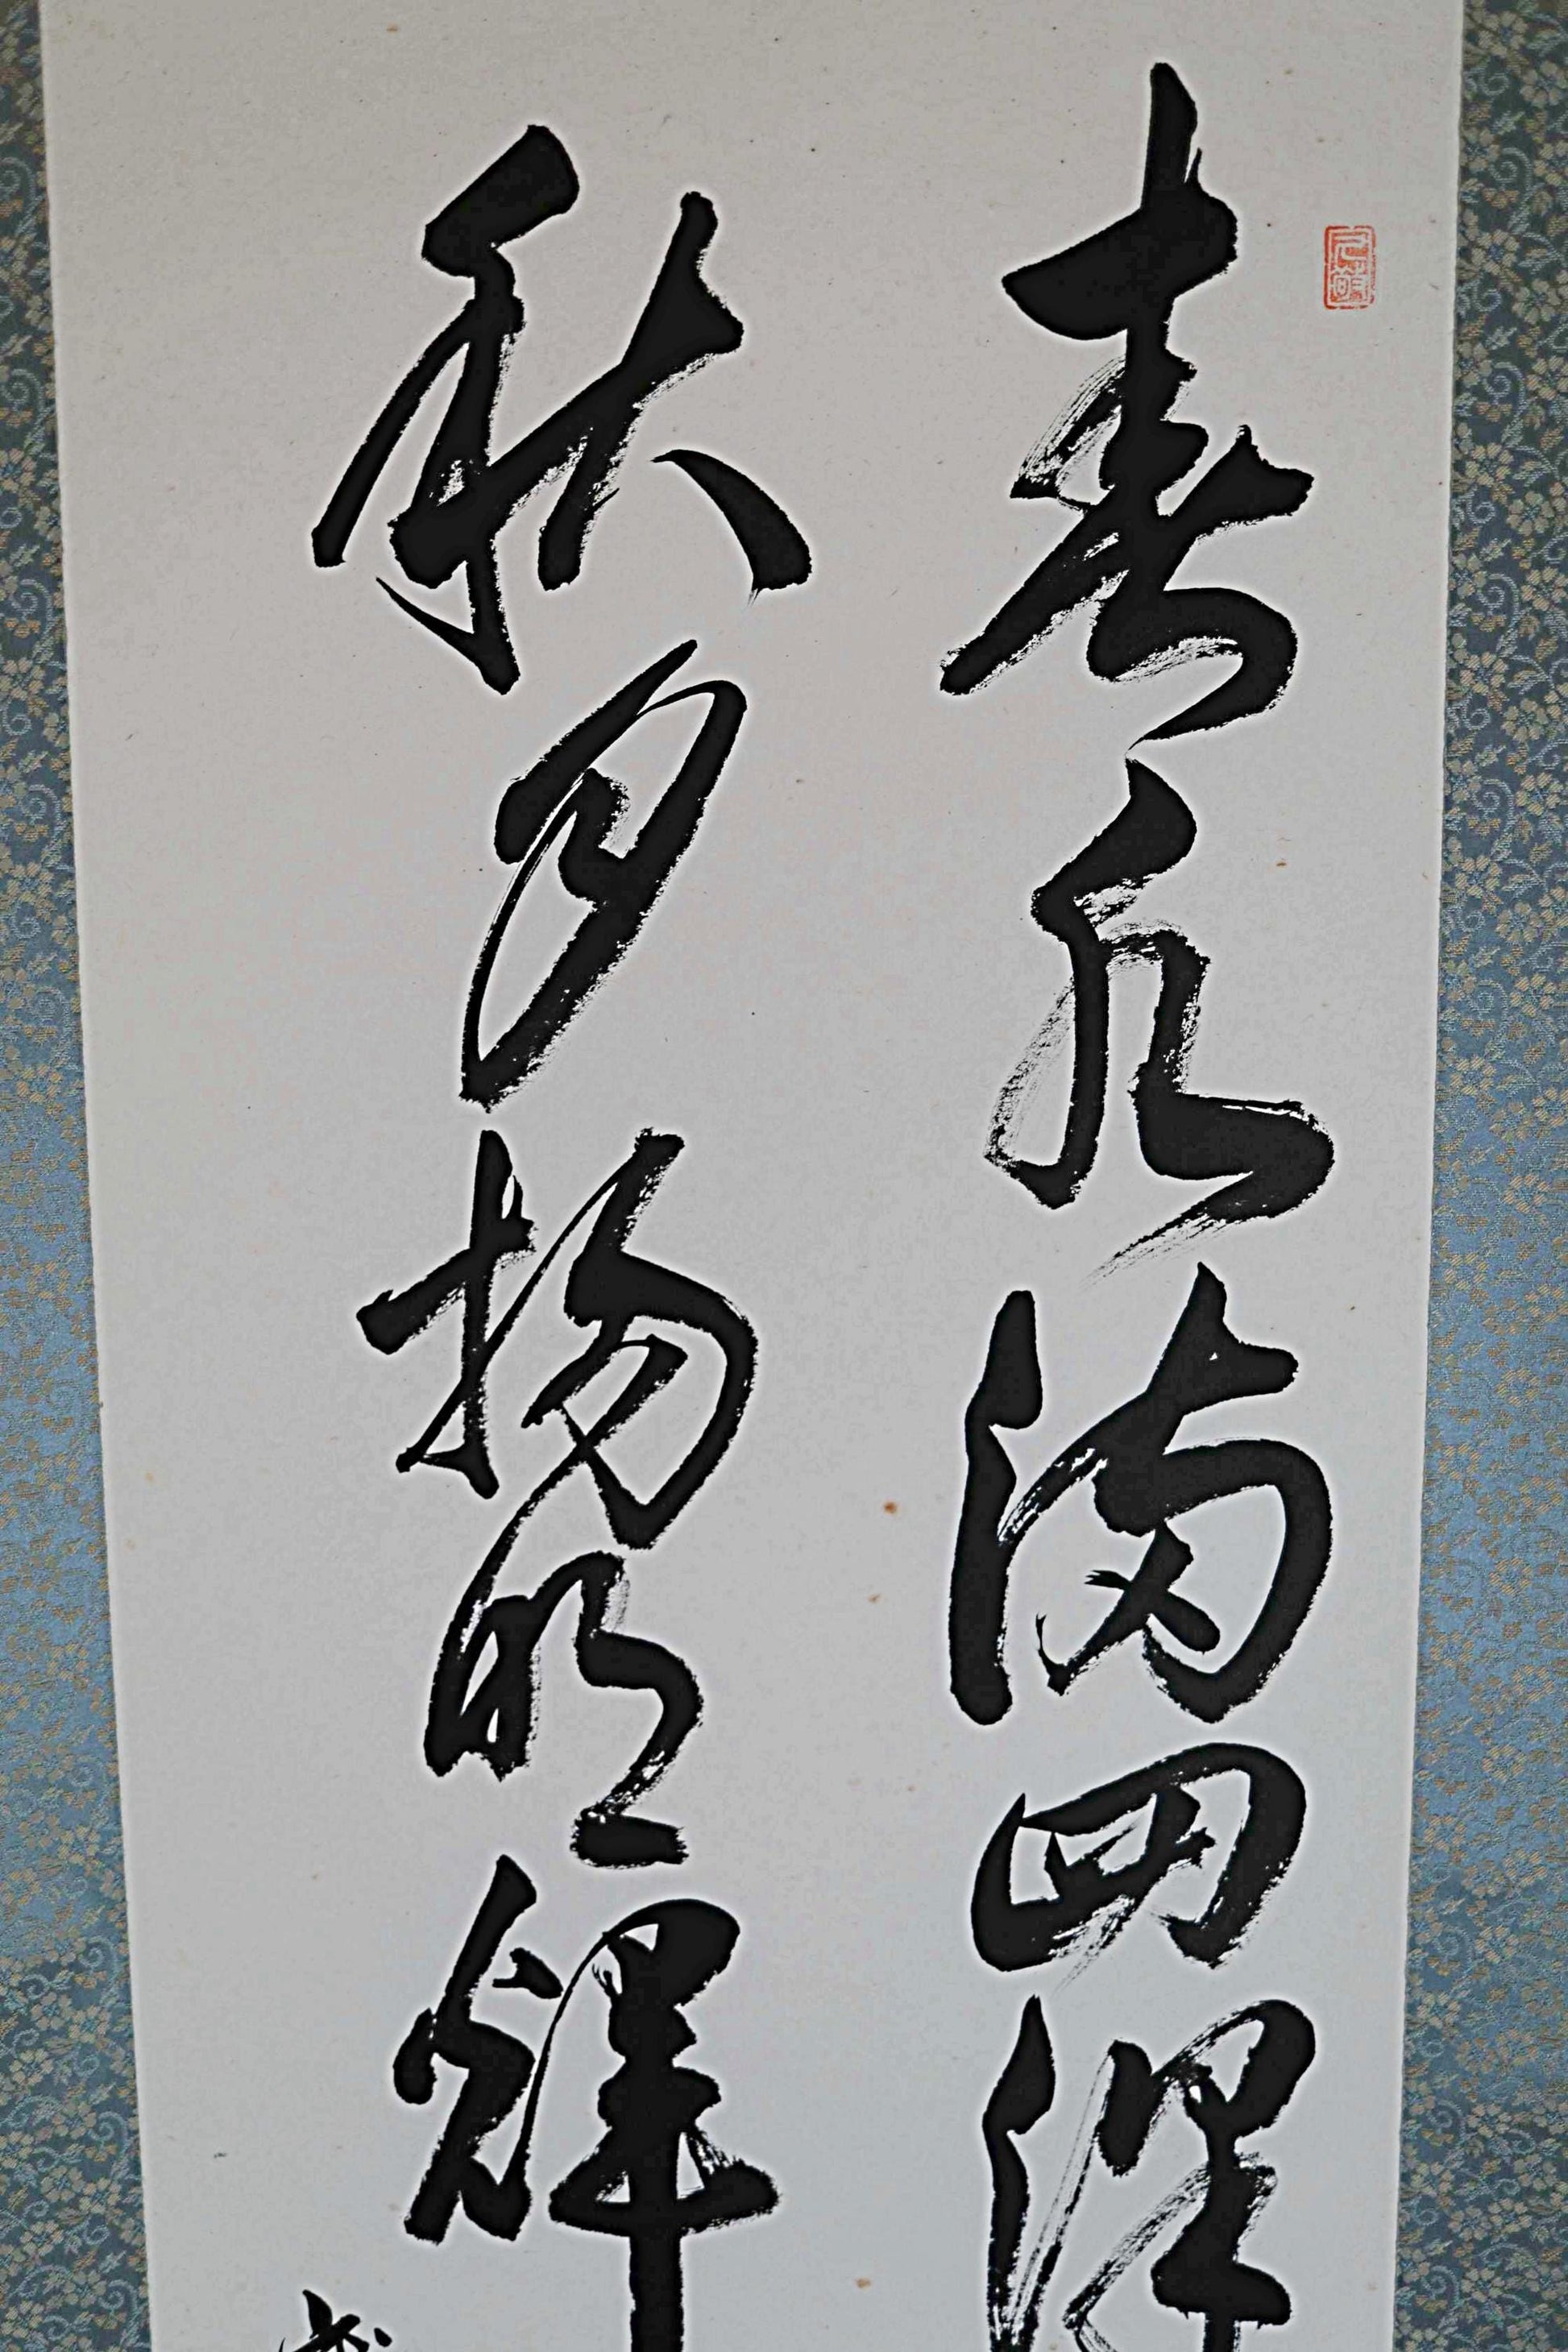 春水満四澤
秋月揚明輝